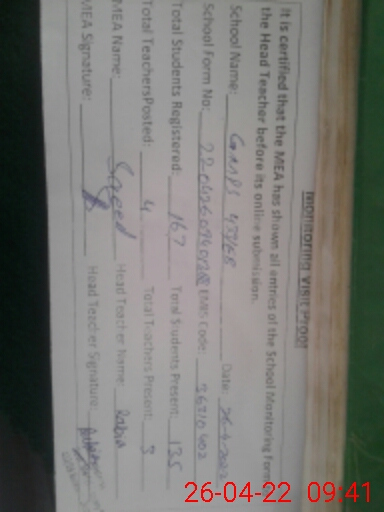 Monitoring Visit Proof
It is certified that the MEA has shown all entries of the School Monitoring Form
the Head Teacher before its online submission.
School Name: Date: 26-4-2022
School Form No: EMIS Code: 36710402
Total Students Registered: 167 Total Students Present: 135
Total TeachersPosted: 4 Total Teachers Present: 3
MEA Name: Saeed Head Teacher Name: Rabia
MEA Signature: Head Teacher Signature:
26-04-22 09:41